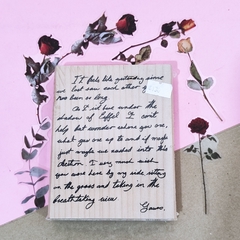 It feels like yesterday since
we last saw each other yet it's
been so long.
As I sit here under the
shadow of Eiffel I can't
help but wonder where you are,
what you are up to and if maybe
just maybe we headed into this
direction I very much wish
you were here by my side sitting
on the grass and taking in the
breathtaking view
Yours,